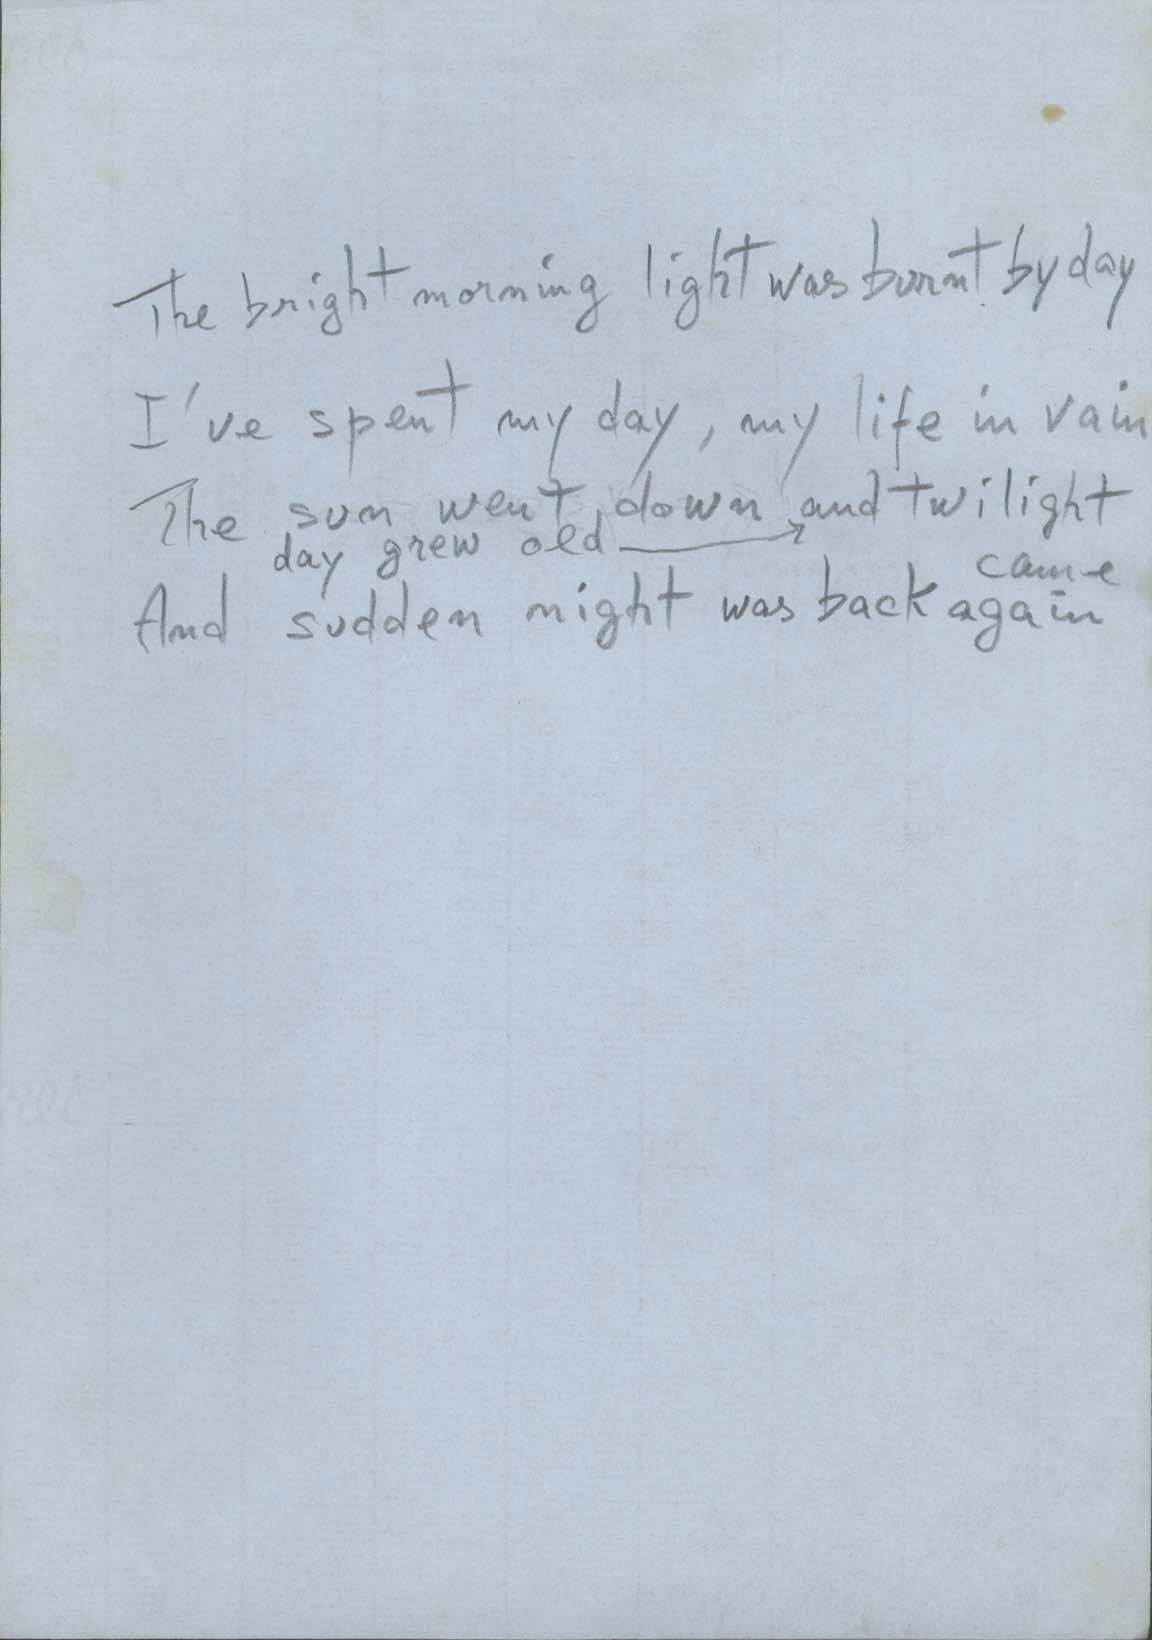 The bright morning light was burnt by day
I've spent my day, my life in vain
The sun went down and twilight
day grew old → came
And sudden night was back again